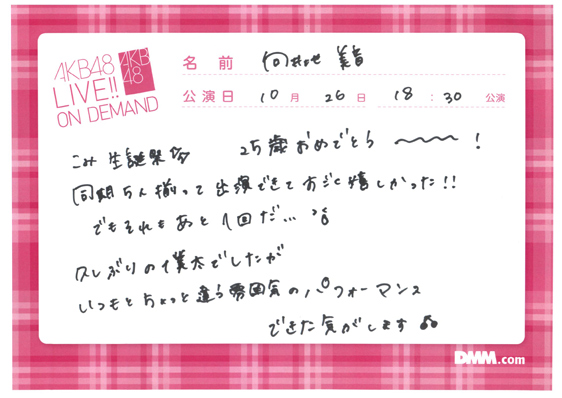 AKB48
LIVE!!
ON DEMAND
AKB
48
名前 向井地 美音
公演日 10月 26日 18:30 公演
こみ生誕祭 25歳おめでとう〜〜!
同期5人揃って出演できてまじで嬉しかった!!
でもそれもあと1回だ…
久しぶりの僕太でしたが
いつもとちょっと違う雰囲気のパフォーマンス
できた気がします
DMM.com